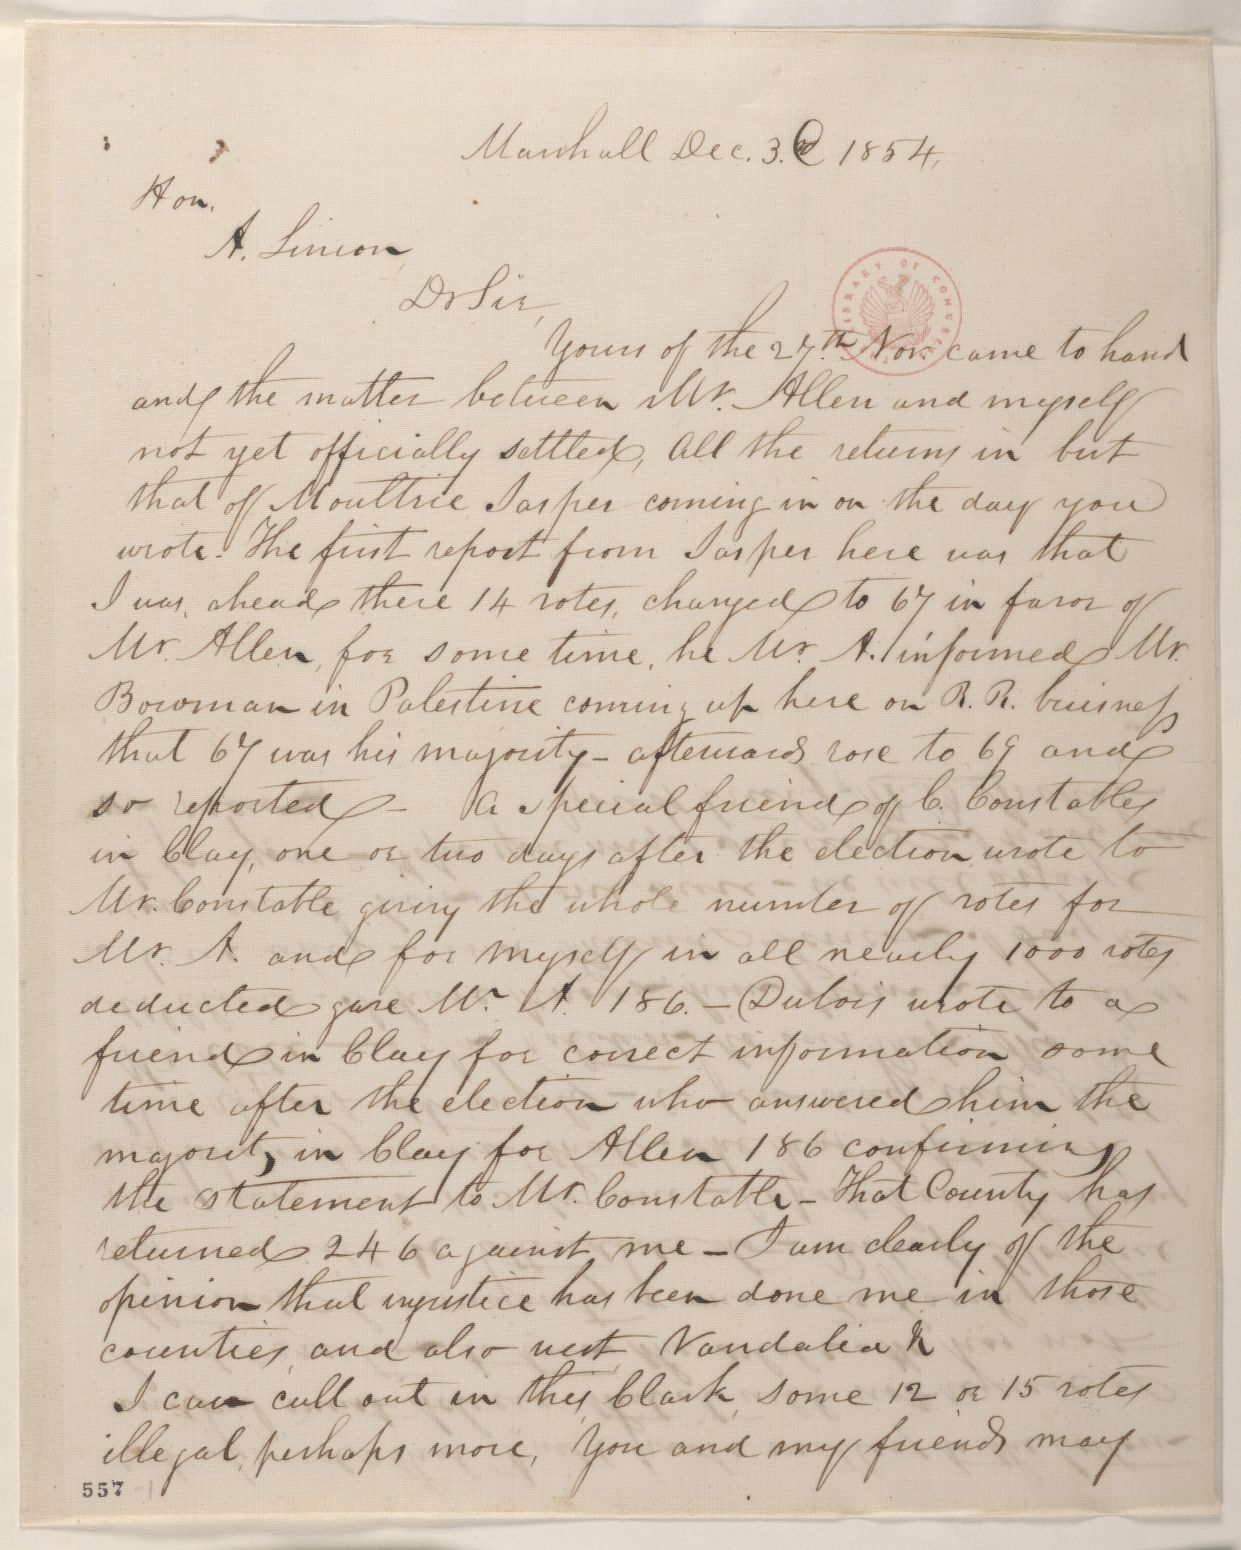 Marshall Dec. 3.rd 1854,
Hon.
A. Lincon,
Dr Sir,
LIBRARY OF CONGRESS
Yours of the 27.th Nov. came to hand
and the matter between Mr. Allen and myself
not yet officially settled, All the returns in but
that of Moultrie, Jasper coming in on the day you
wrote. The first report from Jasper here was that
I was, ahead there 14 votes, changed to 67 in favor of
Mr. Allen, for some time, he Mr. A. informed Mr.
Bowman in Palestine coming up here on R. R. buisness
that 67 was his majority - afterwards rose to 69 and
so reported - A special friend of C. Constables
in Clay, one or two days after the election wrote to
Mr. Constable giving the whole number of votes for
Mr. A. and for myself in all nearly 1000 votes
deducted gave Mr. A. 186. - Dubois wrote to a
friend in Clay for correct information some
time after the election who answered him the
majority in Clay for Allen 186 confirming
the statement to Mr. Constable - That County has
returned 246 against me - I am clearly of the
opinion that injustice has been done me in those
counties, and also west, Vandalia &
I can cull out in this, Clark, some 12 or 15 votes
illegal, perhaps more, You and my friends may
557